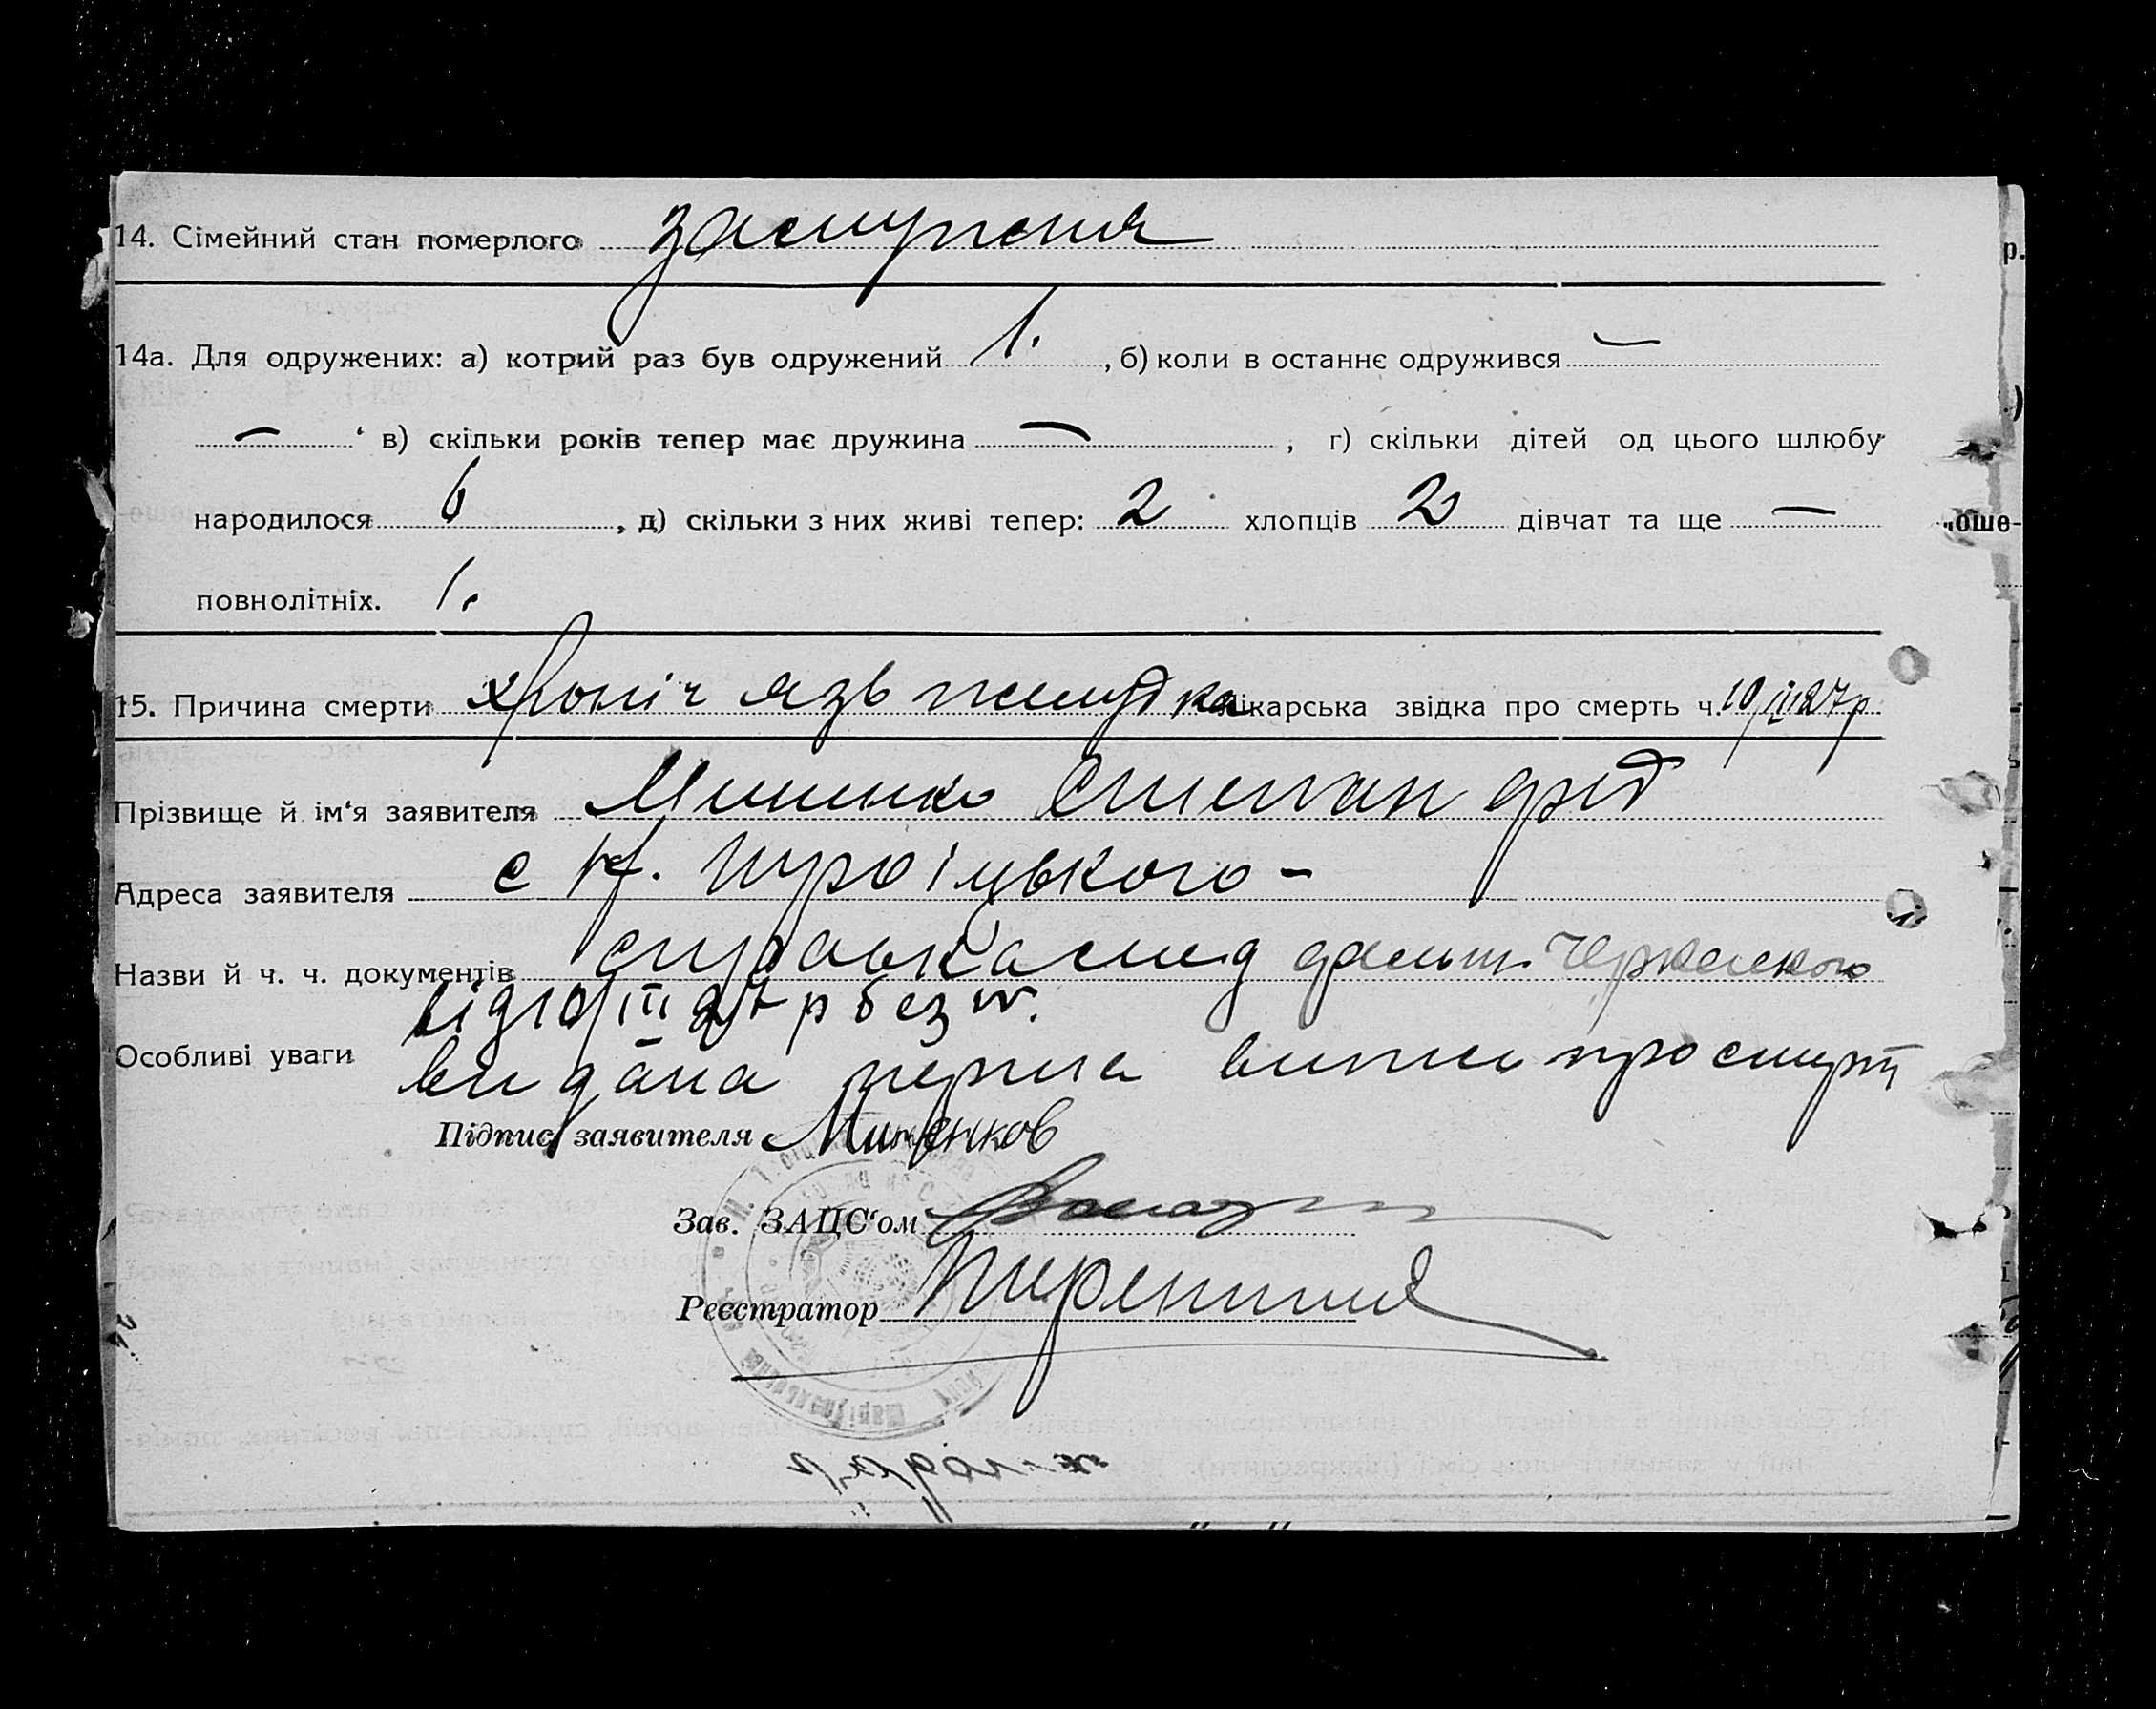 14. Сімейний стан померлого замужня
14а. Для одружених: а) котрий раз був одружений 1. , б) коли в останнє одружився —
— в) скільки років тепер має дружина — , г) скільки дітей од цього шлюбу
народилося 6 , д) скільки з них живі тепер: 2 хлопців 2 дівчат та ще —
повнолітніх. 1.
15. Причина смерти хроніч язв желудка Лікарська звідка про смерть ч. 10/III 27 р
Прізвище й ім'я заявителя Миненко Степан
Адреса заявителя с Н. Троіцького -
Назви й ч. ч. документів справка Черкаского
від 10/III 27 р без №.
Особливі уваги видана перша випись про смерть
Підпис заявителя Миненков
Зав. ЗАЦС'ом
Реєстратор